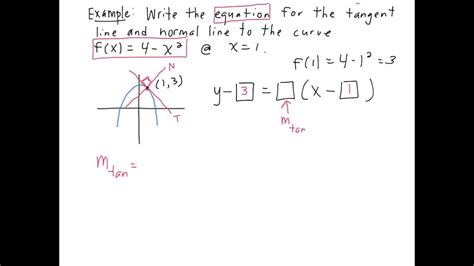 Example: Write the equation for the tangent
line and normal line to the curve
f(x) = 4 - x² @ x=1.
f(1) = 4-1² = 3
N
(1,3)
y - 3 = □ (x - 1)
m tan
T
m tan =